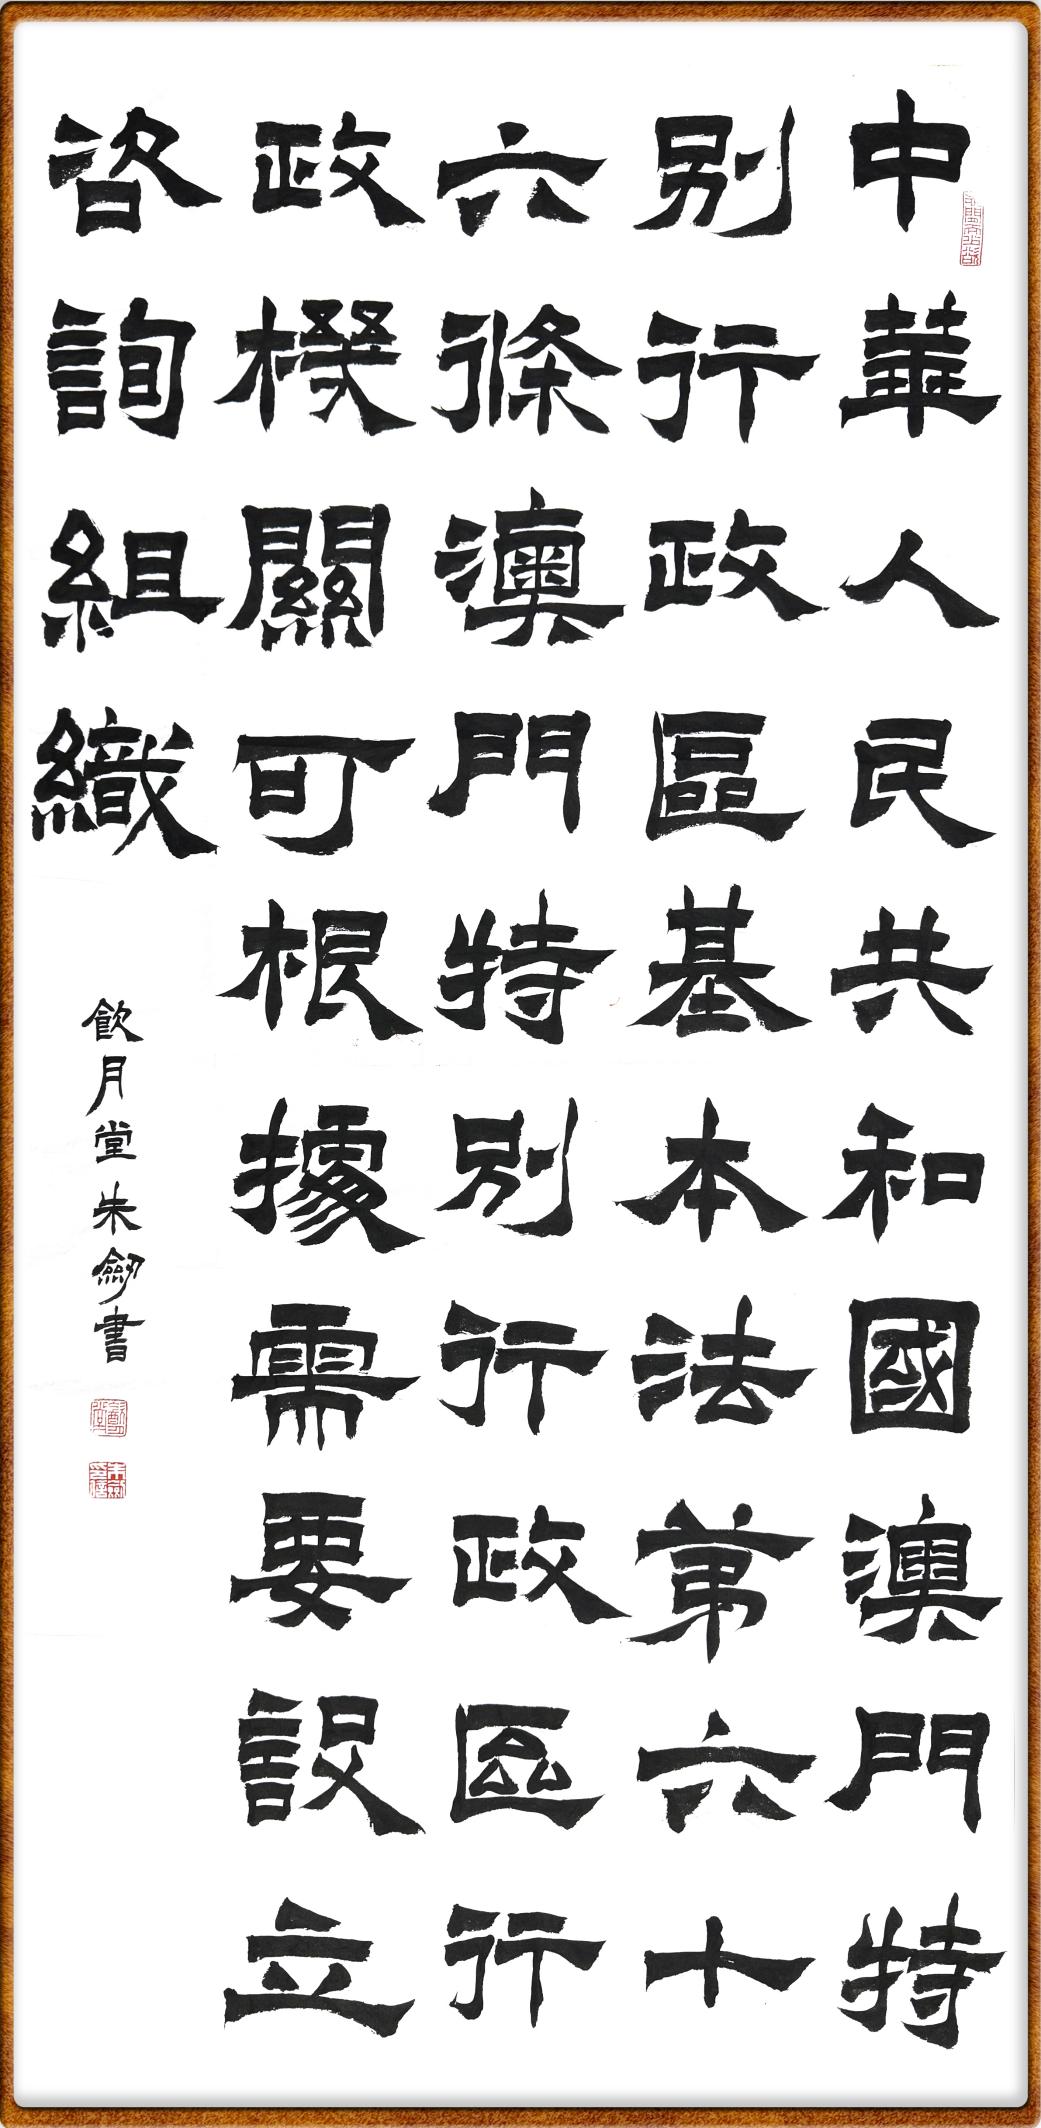 中華人民共和國澳門特
別行政區基本法第六十
六條澳門特別行政區行
政機關可根據需要設立
咨詢組織
飲月堂朱劍書